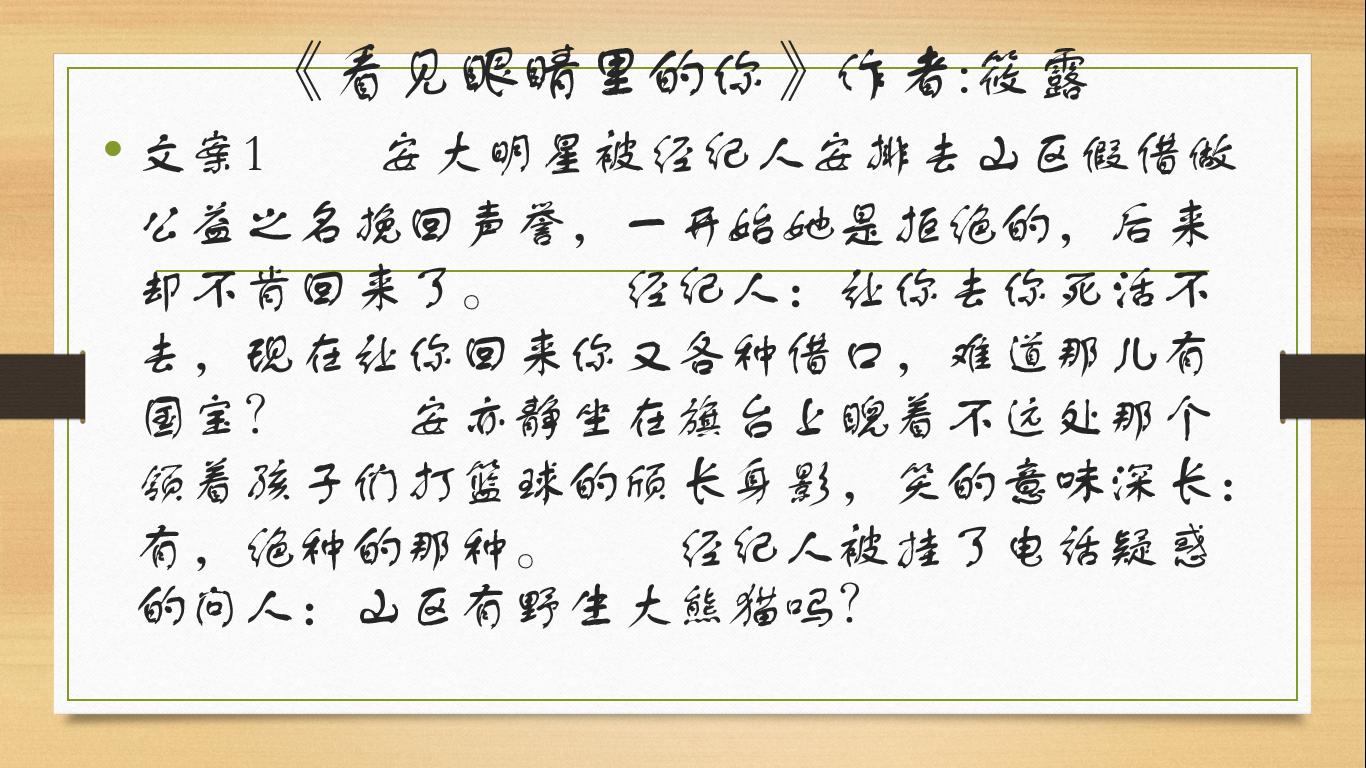 《看见眼睛里的你》作者:筱露
文案1　　安大明星被经纪人安排去山区假借做
公益之名挽回声誉，一开始她是拒绝的，后来
却不肯回来了。　　经纪人：让你去你死活不
去，现在让你回来你又各种借口，难道那儿有
国宝？　　安亦静坐在旗台上睨着不远处那个
领着孩子们打篮球的颀长身影，笑的意味深长：
有，绝种的那种。　　经纪人被挂了电话疑惑
的问人：山区有野生大熊猫吗？